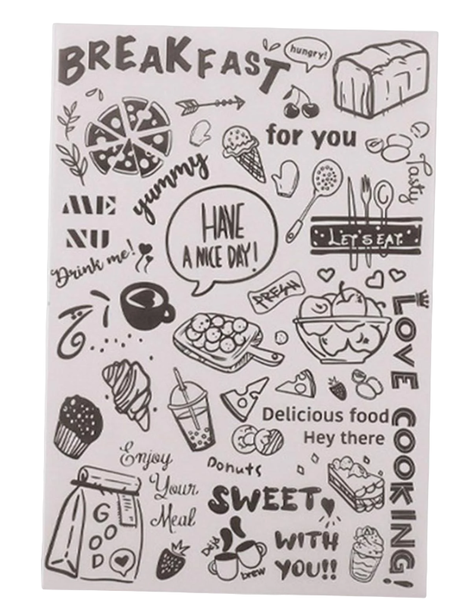 BREAKFAST
hungry!
for you
yummy
Tasty
ME
NU
HAVE
A NICE DAY!
LET'S EAT.
Drink me!
DREAM
LOVE COOKING!
Delicious food
Hey there
Enjoy
Your
Meal
Donuts
GOOD
SWEET
WITH
YOU!!
brew